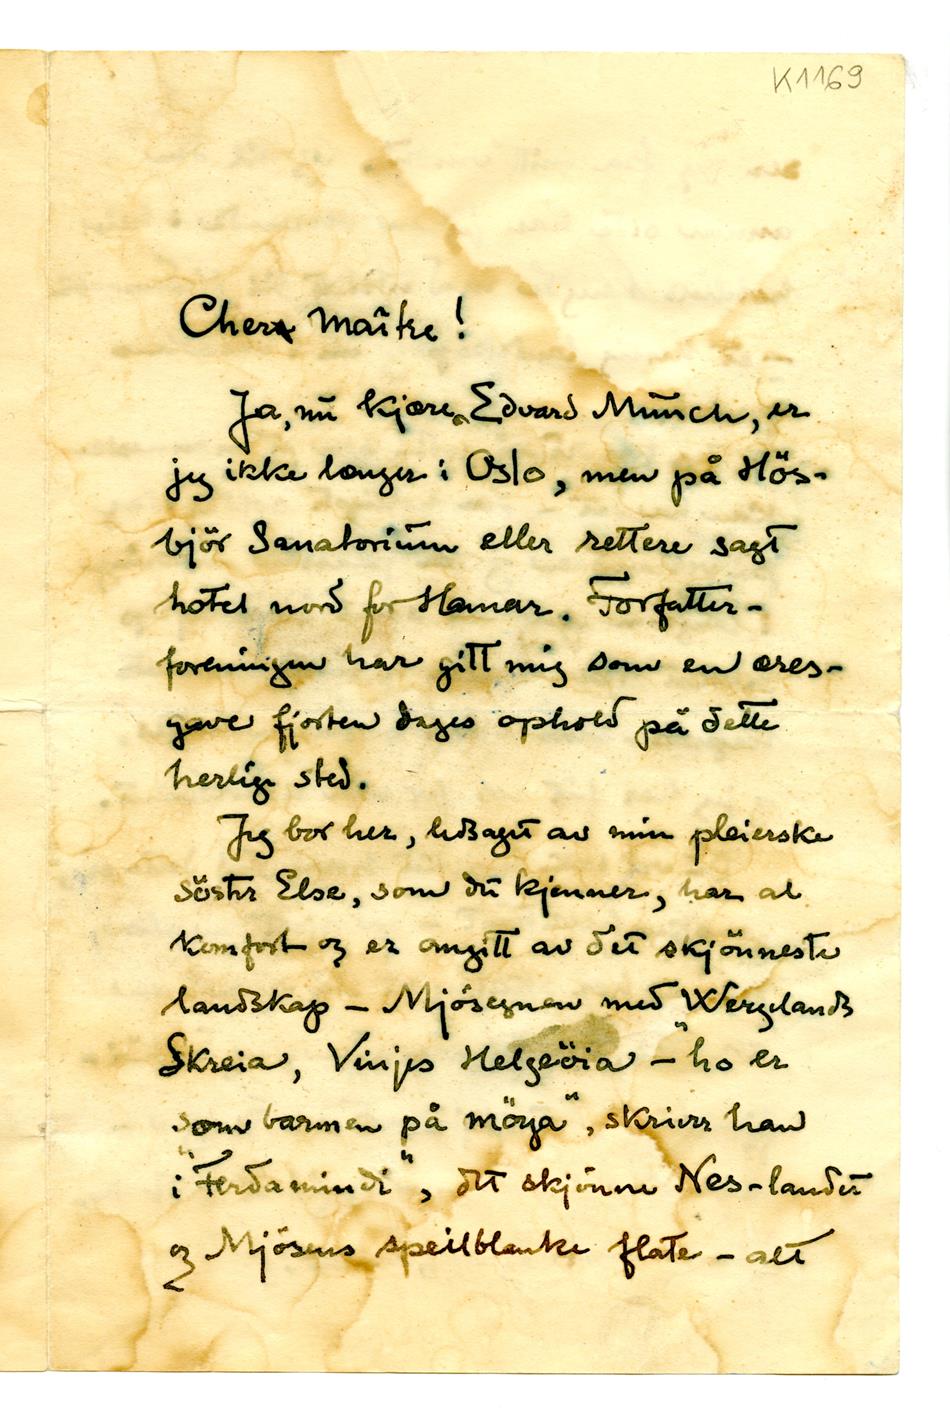 K1169
Cher Maître!
Ja, nu kjære, Edvard Munch, er
jeg ikke længer i Oslo, men på Hös-
björ Sanatorium eller rettere sagt
hotel nord for Hamar. Forfatter-
foreningen har gitt mig som en æres-
gave fjorten dages ophold på dette
herlige sted.
Jeg bor her, ledsaget av min pleierske
söster Else, som du kjenner, har al
komfort og er omgitt av det skjönneste
landskap – Mjösegnen med Wergelands
Skreia, Vinjes Helgeöia – "ho er
som barmen på möya", skriver han
i "Ferdamindi", det skjönne Nes-landet
og Mjösens speilblanke flate – alt